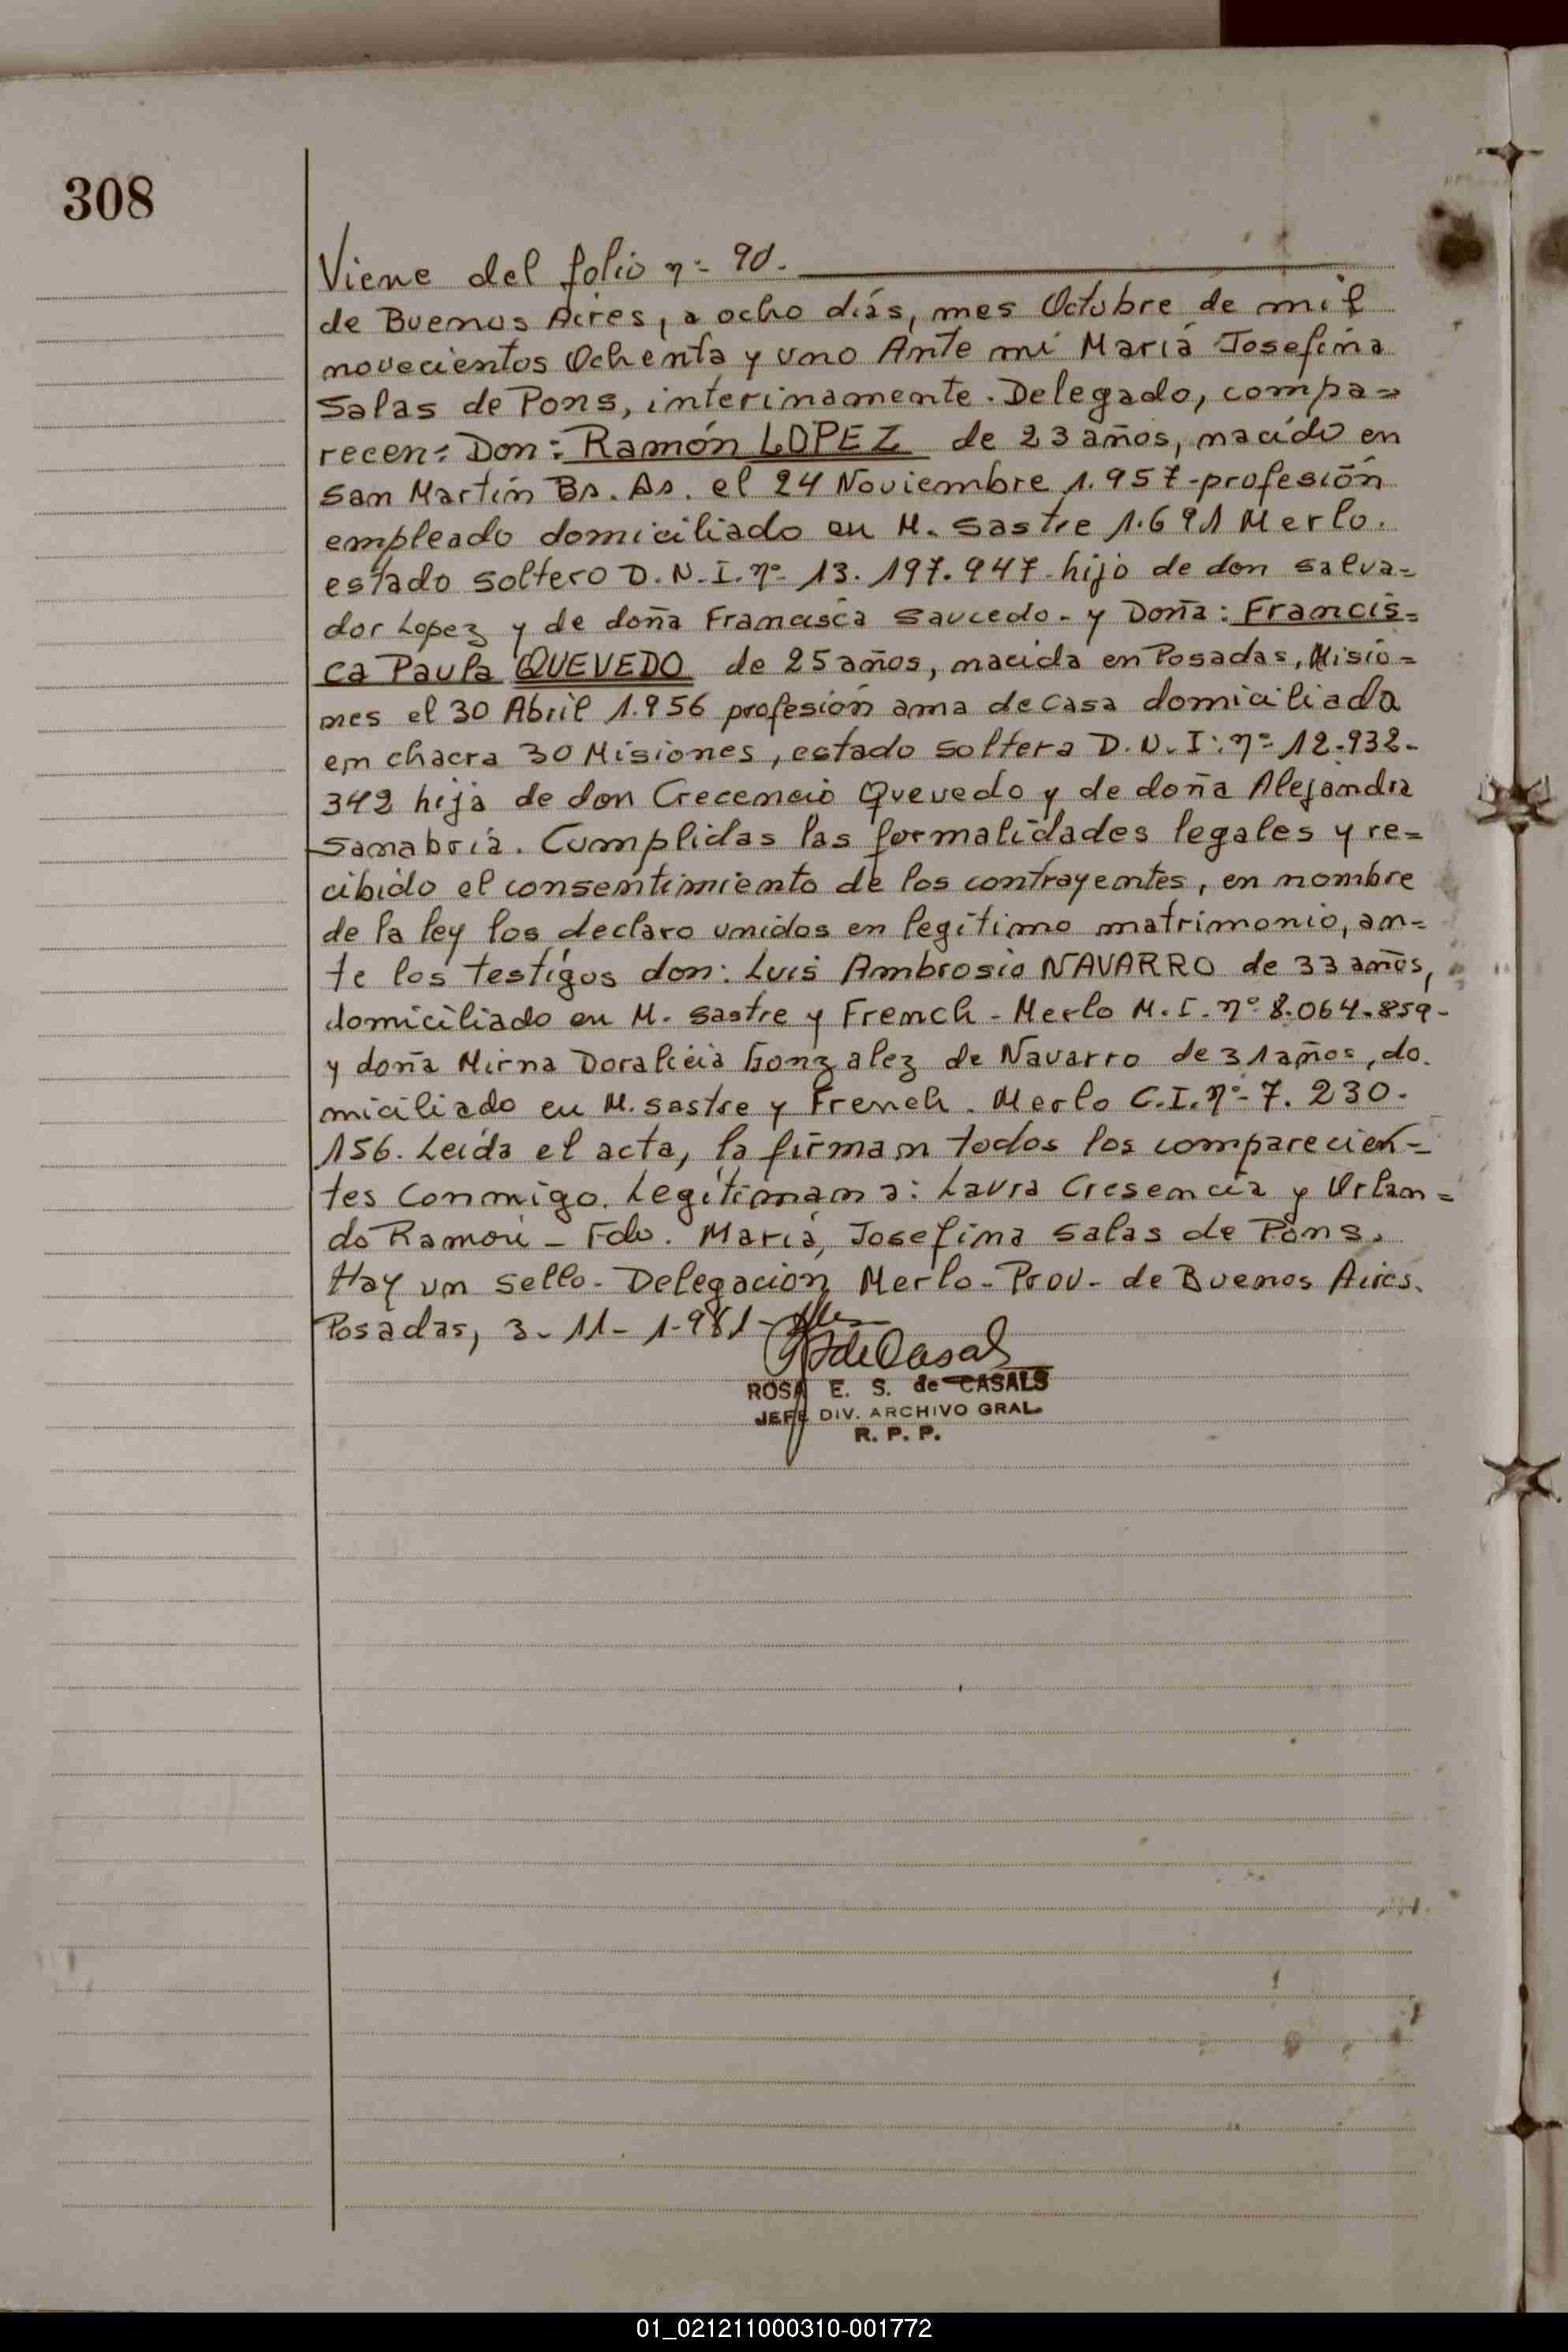 308
Viene del folio nº 90.
de Buenos Aires, a ocho días, mes Octubre de mil
novecientos Ochenta y uno Ante mí María Josefina
Salas de Pons, interinamente. Delegado, compa=
recen: Don: Ramón LOPEZ de 23 años, nacido en
San Martín Bs. As. el 24 Noviembre 1.957-profesión
empleado domiciliado en M. Sastre 1.691 Merlo.
estado soltero D.N.I. nº 13.197.947-hijo de don Salva=
dor Lopez y de doña Francisca Saucedo- y Doña: Francis=
ca Paula QUEVEDO de 25 años, nacida en Posadas, Misio=
nes el 30 Abril 1.956 profesión ama de casa domiciliada
en chacra 30 Misiones, estado soltera D.N.I: nº 12.932-
342 hija de don Crecencio Quevedo y de doña Alejandra
Sanabria. Cumplidas las formalidades legales y re=
cibido el consentimiento de los contrayentes, en nombre
de la ley los declaro unidos en legítimo matrimonio, an=
te los testigos don: Luis Ambrosio NAVARRO de 33 años,
domiciliado en M. Sastre y French - Merlo M.I. nº 8.064.859-
y doña Mirna Doralicia Gonzalez de Navarro de 31 años, do.
miciliado en M. Sastre y French. Merlo C.I. nº 7.230.
156. Leída el acta, la firman todos los comparecien=
tes conmigo. Legitiman a: Laura Cresencia y Orlan=
do Ramón - Fdo. María Josefina Salas de Pons.
Hay un sello- Delegacion Merlo-Prov- de Buenos Aires.
Posadas, 3-11-1.981-
ROSA E. S. de CASALS
JEFE DIV. ARCHIVO GRAL.
R. P. P.
01_021211000310-001772